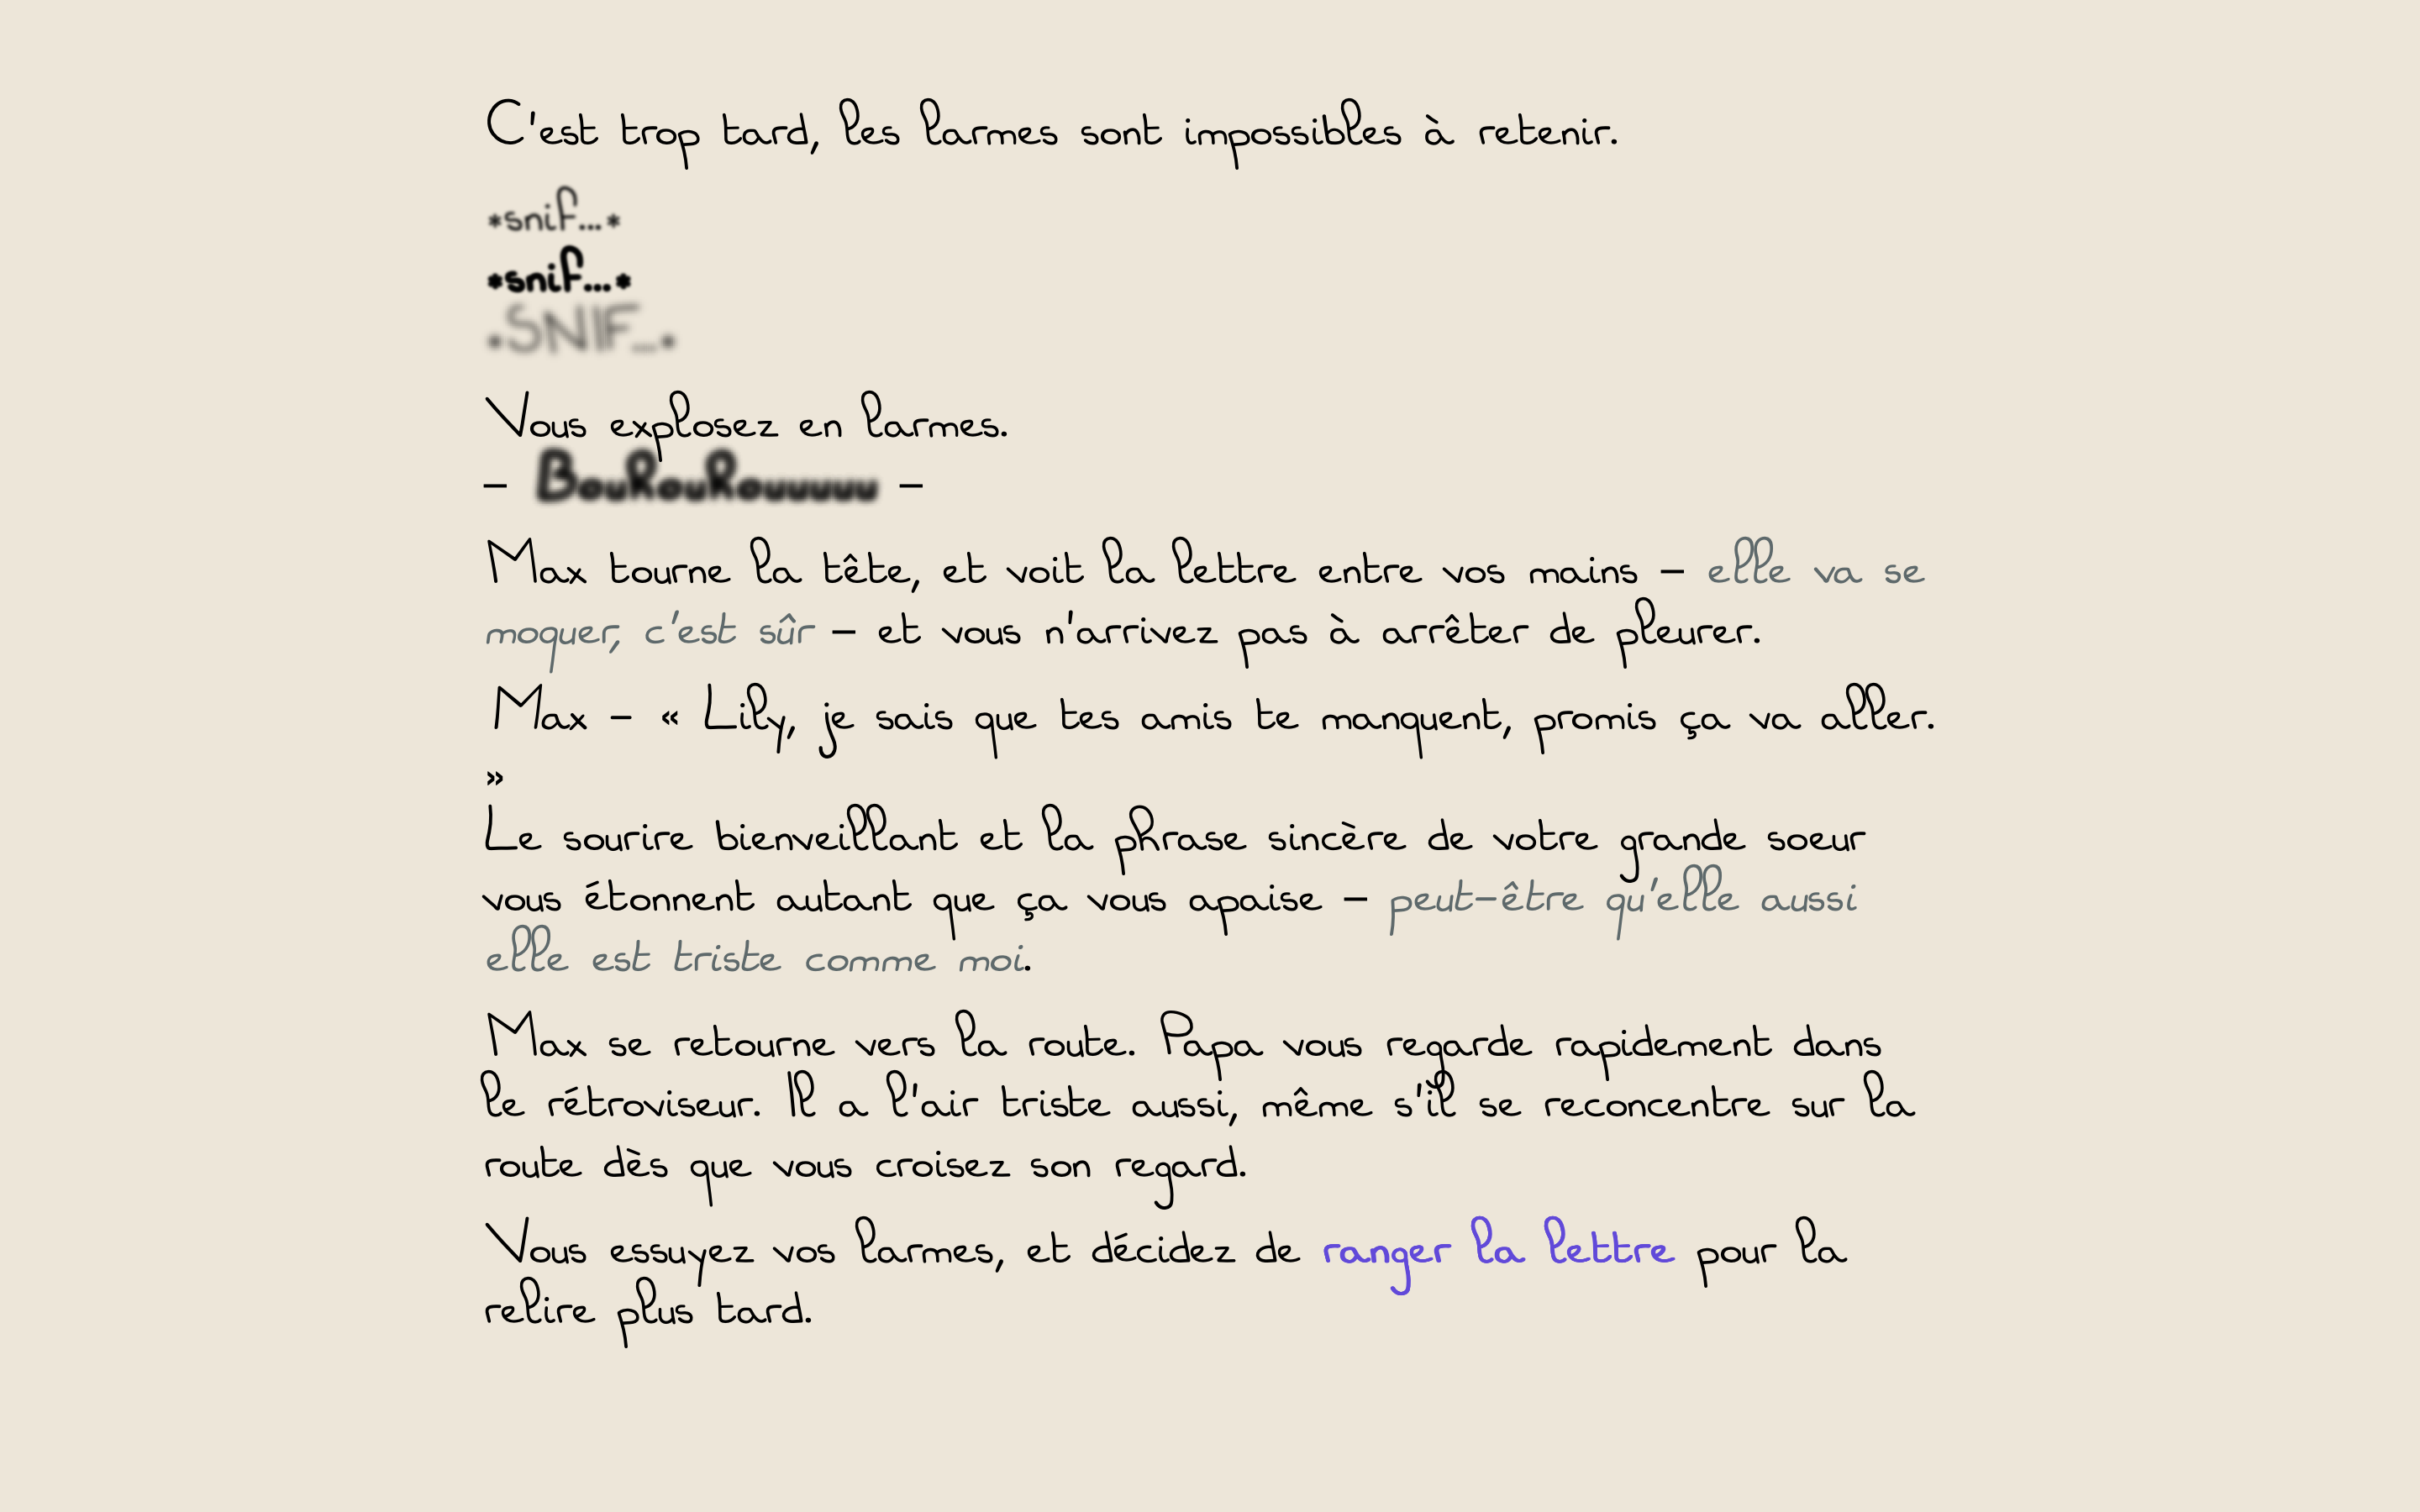 C'est trop tard, les larmes sont impossibles à retenir.
*snif...*
*snif...*
*SNIF...*
Vous explosez en larmes.
– Bouhouhouuuuuu –
Max tourne la tête, et voit la lettre entre vos mains – elle va se
moquer, c'est sûr – et vous n'arrivez pas à arrêter de pleurer.
Max – « Lily, je sais que tes amis te manquent, promis ça va aller.
»
Le sourire bienveillant et la phrase sincère de votre grande soeur
vous étonnent autant que ça vous apaise – peut-être qu'elle aussi
elle est triste comme moi.
Max se retourne vers la route. Papa vous regarde rapidement dans
le rétroviseur. Il a l'air triste aussi, même s'il se reconcentre sur la
route dès que vous croisez son regard.
Vous essuyez vos larmes, et décidez de ranger la lettre pour la
relire plus tard.